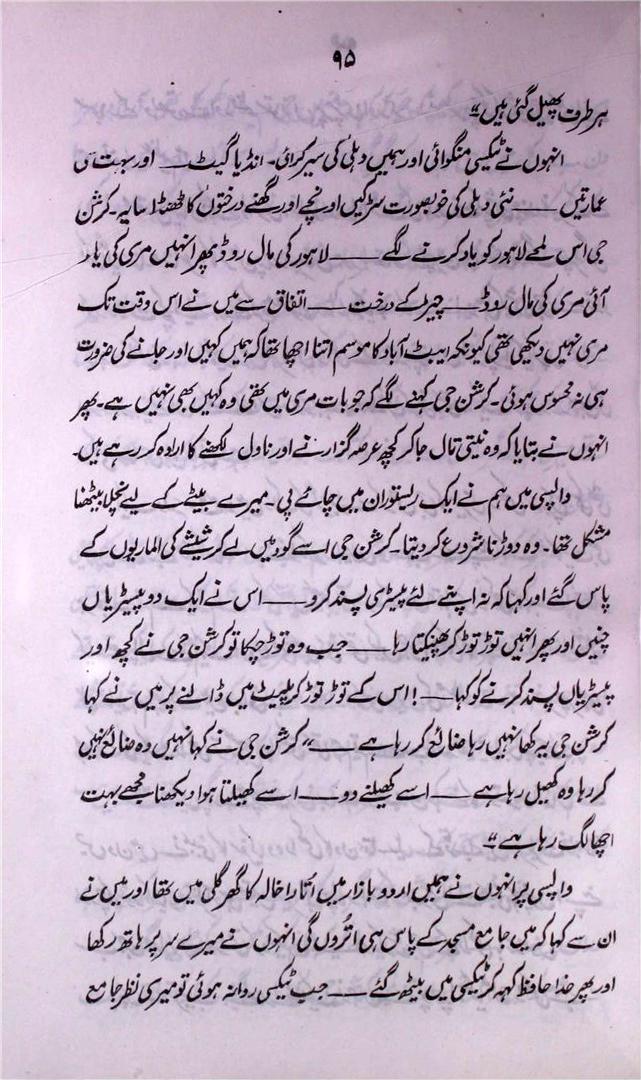 ۹۵
ہر طرف پھیل گئی ہیں"
انہوں نے ٹیکسی منگوائی اور ہمیں دہلی کی سیر کرائی۔ انڈیا گیٹ ـــــ اور بہت سی
عمارتیں ـــــ نئی دہلی کی خوبصورت سڑکیں اونچے اور گھنے درختوں کا ٹھنڈا سایہ۔ کرشن
جی اس لمحے لاہور کو یاد کرنے لگے ـــــ لاہور کی مال روڈ پھر انہیں مری کی یاد
آئی مری کی مال روڈ ـــــ چیڑ کے درخت ـــــ اتفاق سے میں نے اس وقت تک
مری نہیں دیکھی تھی کیونکہ ایبٹ آباد کا موسم اتنا اچھا تھا کہ ہمیں کہیں اور جانے کی ضرورت
ہی نہ محسوس ہوئی۔ کرشن جی کہنے لگے کہ جو بات مری میں تھی وہ کہیں بھی نہیں ہے۔ پھر
انہوں نے بتایا کہ وہ نینی تال جا کر کچھ عرصہ گزارنے اور ناول لکھنے کا ارادہ کر رہے ہیں۔
واپسی میں ہم نے ایک ریستوران میں چائے پی۔ میرے بیٹے کے لیے نچلا بیٹھنا
مشکل تھا۔ وہ دوڑنا شروع کر دیتا۔ کرشن جی اسے گود میں لے کر شیشے کی الماریوں کے
پاس گئے اور کہا کہ نہ اپنے لئے پیسٹری پسند کرو ـــــ اس نے ایک دو پیسٹریاں
چنیں اور پھر انہیں توڑ توڑ کر پھینکتا رہا ـــــ جب وہ توڑ چکا تو کرشن جی نے کچھ اور
پیسٹریاں پسند کرنے کو کہا ـــــ! اس کے توڑ توڑ کر پلیٹ میں ڈالنے پر میں نے کہا
کرشن جی یہ کھا نہیں رہا ضائع کر رہا ہے ـــــ" کرشن جی نے کہا نہیں وہ ضائع نہیں
کر رہا وہ کھیل رہا ہے ـــــ اسے کھیلنے دو ـــــ اسے کھیلتا ہوا دیکھنا مجھے بہت
اچھا لگ رہا ہے"
واپسی پر انہوں نے ہمیں اردو بازار میں اتارا خالہ کا گھر گلی میں تھا اور میں نے
ان سے کہا کہ میں جامع مسجد کے پاس ہی اتُروں گی انہوں نے میرے سر پر ہاتھ رکھا
اور پھر خدا حافظ کہہ کر ٹیکسی میں بیٹھ گئے ـــــ جب ٹیکسی روانہ ہوئی تو میری نظر جامع